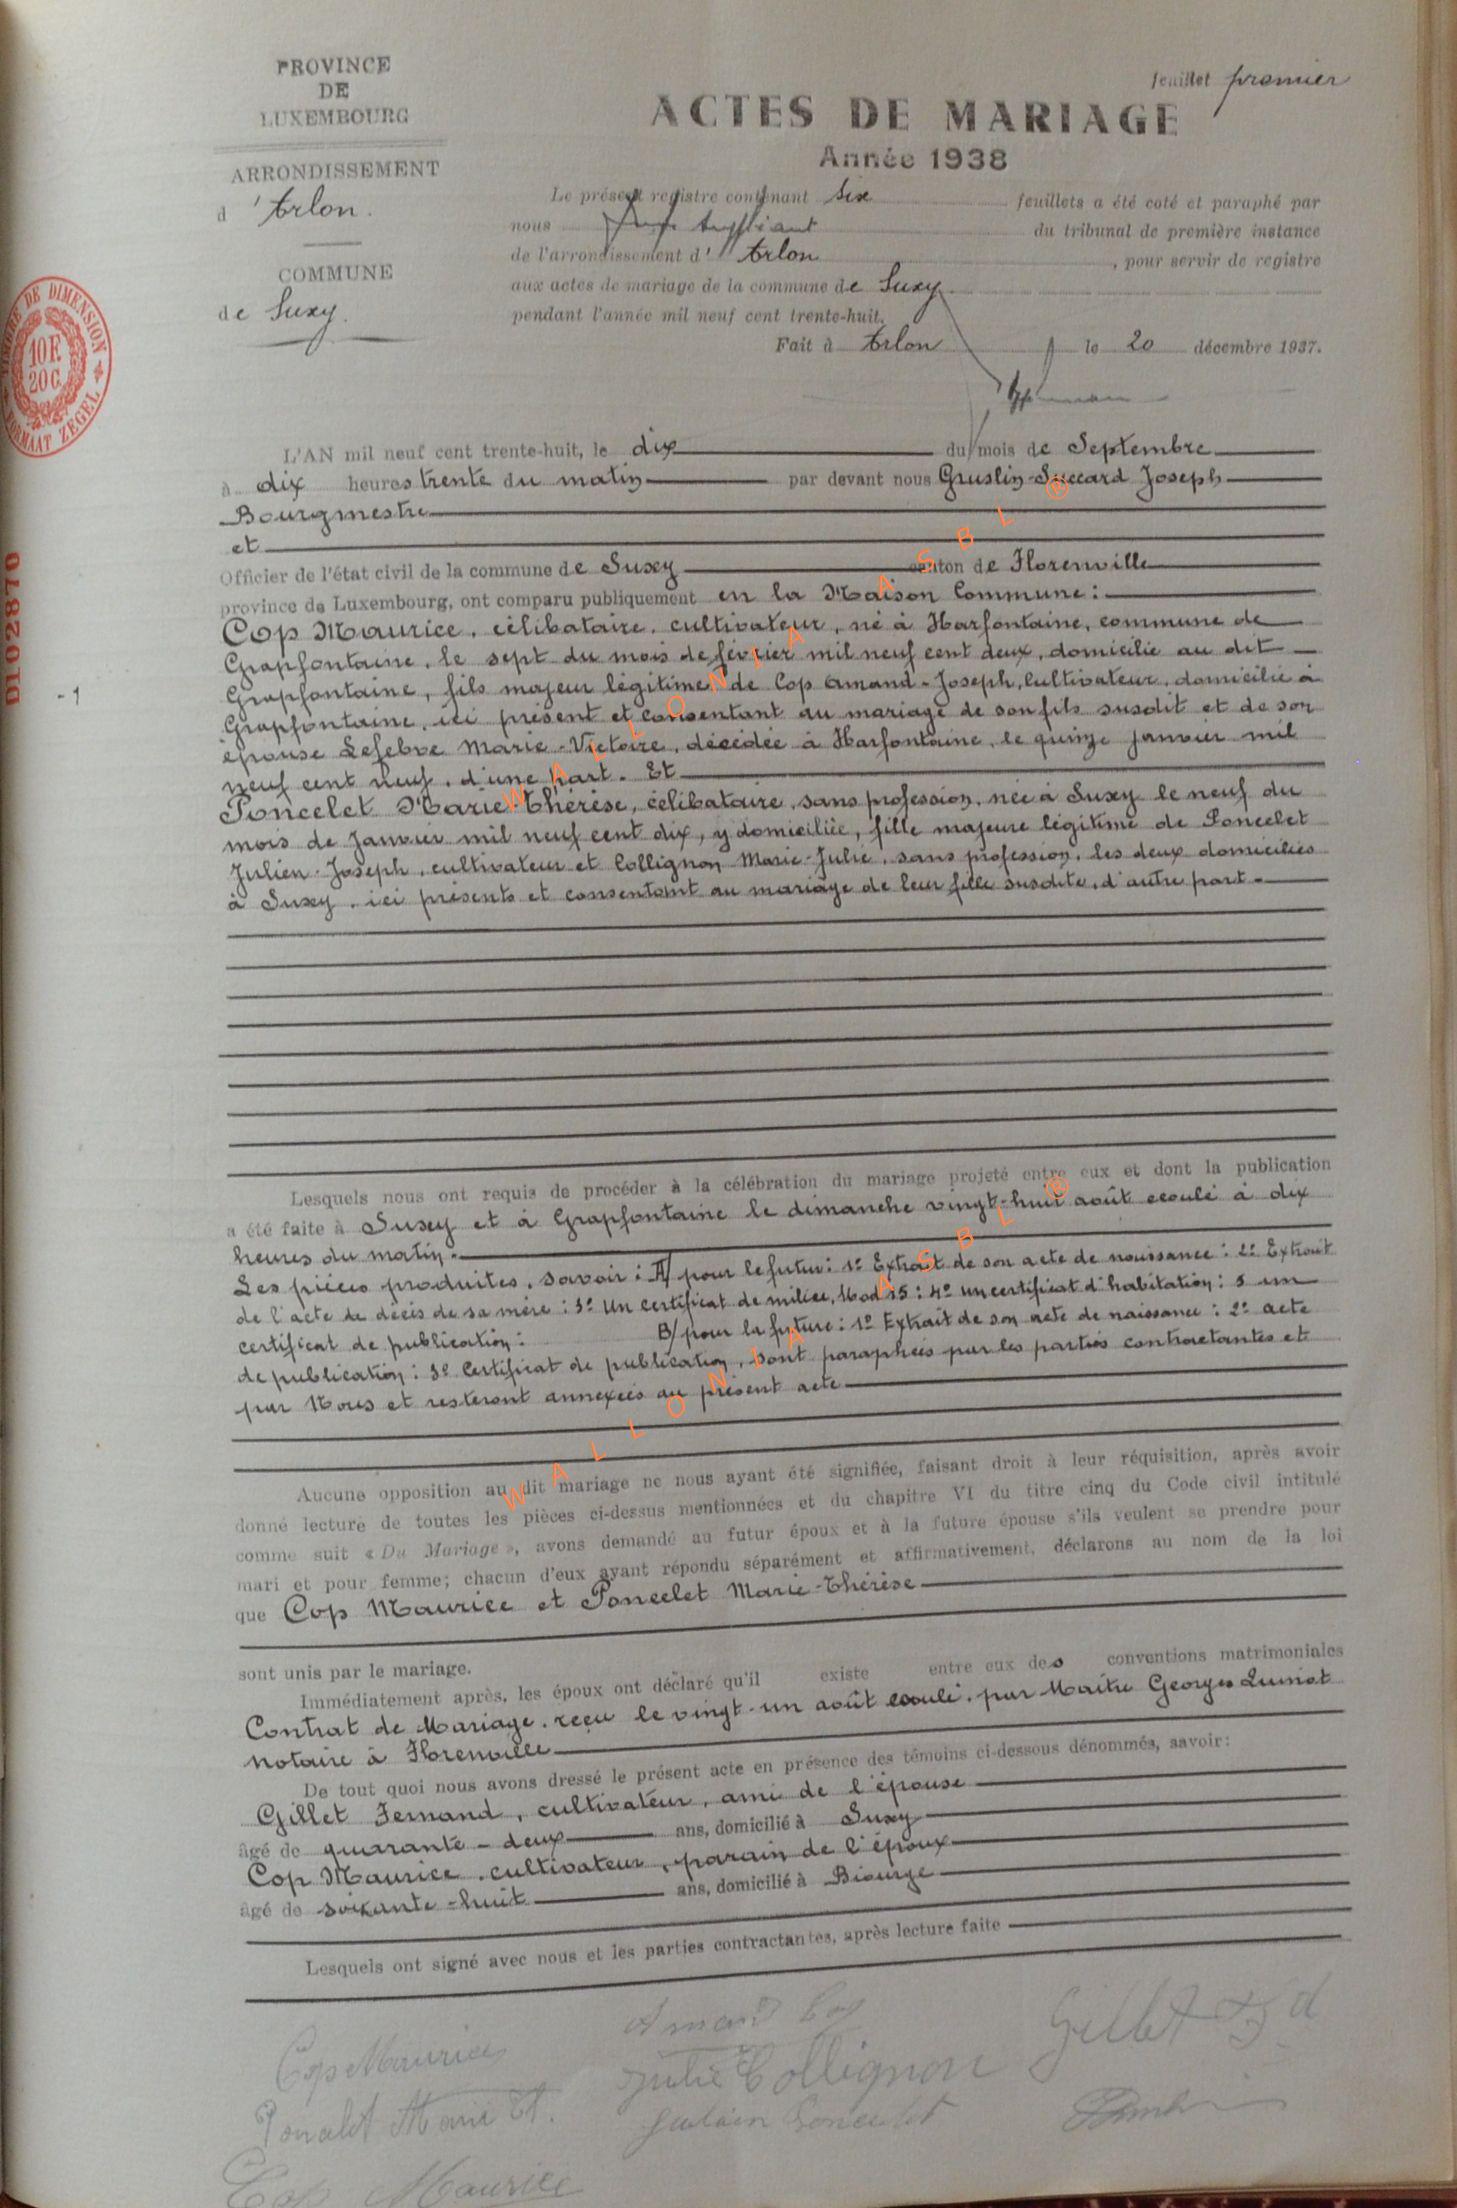 PROVINCE
DE
LUXEMBOURG
ARRONDISSEMENT
d'Arlon.
COMMUNE
de Suxy.
feuillet premier
ACTES DE MARIAGE
Année 1938
Le présent registre contenant six feuillets a été coté et paraphé par
nous Juge suppléant du tribunal de première instance
de l'arrondissement d'Arlon, pour servir de registre
aux actes de mariage de la commune de Suxy.
pendant l'année mil neuf cent trente-huit.
Fait à Arlon le 20 décembre 1937.
TIMBRE DE DIMENSION
10 F.
20 C.
FORMAAT ZEGEL
D102870
- 1
L'AN mil neuf cent trente-huit, le dix du mois de Septembre
à dix heures trente du matin par devant nous Gruslin-Succard Joseph
Bourgmestre
et
Officier de l'état civil de la commune de Suxy canton de Florenville
province de Luxembourg, ont comparu publiquement en la Maison Commune :
Cop Maurice, célibataire, cultivateur, né à Harfontaine, commune de
Grapfontaine, le sept du mois de février mil neuf cent deux, domicilié au dit
Grapfontaine, fils majeur légitime de Cop Amand-Joseph, cultivateur, domicilié à
Grapfontaine, ici présent et consentant au mariage de son fils susdit et de son
épouse Lefebvre Marie-Victoire, décédée à Harfontaine, le quinze janvier mil
neuf cent neuf, d'une part. Et
Poncelet Marie-Thérèse, célibataire, sans profession, née à Suxy le neuf du
mois de Janvier mil neuf cent dix, y domiciliée, fille majeure légitime de Poncelet
Julien-Joseph, cultivateur et Collignon Marie-Julie, sans profession, les deux domiciliés
à Suxy, ici présents et consentant au mariage de leur fille susdite, d'autre part.
Lesquels nous ont requis de procéder à la célébration du mariage projeté entre eux et dont la publication
a été faite à Suxy et à Grapfontaine le dimanche vingt-huit août ecoulé à dix
heures du matin.
Les pièces produites, savoir : A/ pour le futur : 1º Extrait de son acte de naissance : 2º Extrait
de l'acte de décès de sa mère : 3º Un certificat de milice, Mod 15 : 4º un certificat d'habitation : 5 un
certificat de publication : B/ pour la future : 1º Extrait de son acte de naissance : 2º acte
de publication : 3º Certificat de publication, sont paraphées par les parties contractantes et
par Nous et resteront annexées au présent acte
Aucune opposition au dit mariage ne nous ayant été signifiée, faisant droit à leur réquisition, après avoir
donné lecture de toutes les pièces ci-dessus mentionnées et du chapitre VI du titre cinq du Code civil intitulé
comme suit « Du Mariage », avons demandé au futur époux et à la future épouse s'ils veulent se prendre pour
mari et pour femme; chacun d'eux ayant répondu séparément et affirmativement, déclarons au nom de la loi
que Cop Maurice et Poncelet Marie-Thérèse
sont unis par le mariage.
Immédiatement après, les époux ont déclaré qu'il existe entre eux des conventions matrimoniales
Contrat de Mariage, reçu le vingt-un août ecoulé, par Maître Georges
notaire à Florenville
De tout quoi nous avons dressé le présent acte en présence des témoins ci-dessous dénommés, savoir :
Gillet Fernand, cultivateur, ami de l'épouse
âgé de quarante-deux ans, domicilié à Suxy
Cop Maurice, cultivateur, parain de l'époux
âgé de soixante-huit ans, domicilié à Biourge
Lesquels ont signé avec nous et les parties contractantes, après lecture faite
Amand Cop
Gillet
Cop Maurice
Julie Collignon
Poncelet Marie Th.
Julien Poncelet
Cop Maurice
WALLONIA ASBL ®
WALLONIA ASBL ®